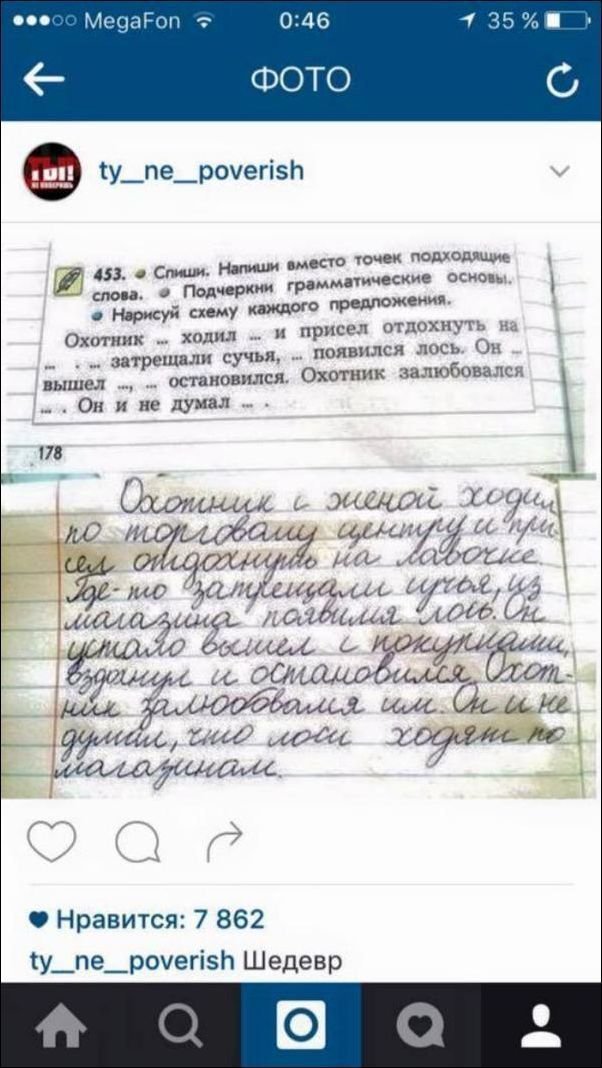 MegaFon 0:46 35 %
ФОТО
ТЫ!
НЕ ПОВЕРИШЬ
ty__ne__poverish
453. Спиши. Напиши вместо точек подходящие
слова. Подчеркни грамматические основы.
Нарисуй схему каждого предложения.
Охотник ... ходил ... и присел отдохнуть на
... . ... затрещали сучья, ... появился лось. Он ...
вышел ..., ... остановился. Охотник залюбовался
... . Он и не думал ... .
178
Охотник с женой ходил
по торговому центру и при-
сел отдохнуть на лавочке
Где-то затрещали сучья, из
магазина появился лось. Он
устало вышел с покупками,
вздохнул и остановился. Охот-
ник залюбовался им. Он и не
думал, что лоси ходят по
магазинам.
Нравится: 7 862
ty__ne__poverish Шедевр